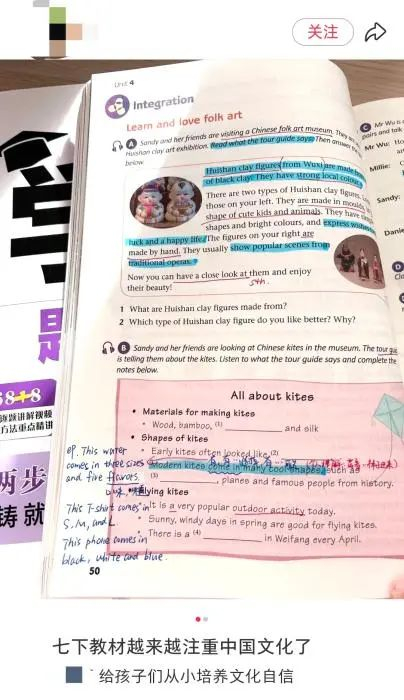 关注
Unit 4
Integration
Learn and love folk art
A Sandy and her friends are visiting a Chinese folk art museum. They
Huishan clay art exhibition. Read what the tour guide says. Then answer
below.
Huishan clay figures from Wuxi are made
of black clay. They have strong local colour
There are two types of Huishan clay figures.
those on your left. They are made in
shape of cute kids and animals. They have
shapes and bright colours, and express wishes
luck and a happy life. The figures on your right are
made by hand. They usually show popular scenes from
traditional operas.
Now you can have a close look at them and enjoy
their beauty!
sth.
1 What are Huishan clay figures made from?
2 Which type of Huishan clay figure do you like better? Why?
B Sandy and her friends are looking at Chinese kites in the museum. The tour
is telling them about the kites. Listen to what the tour guide says and complete the
notes below.
All about kites
• Materials for making kites
• Wood, bamboo, (1) ________ and silk
• Shapes of kites
• Early kites often looked like (2)
Modern kites come in many cool shapes, such as
(3) ________, planes and famous people from history.
Flying kites
It is a very popular outdoor activity today.
• Sunny, windy days in spring are good for flying kites.
• There is a (4) ________ in Weifang every April.
eg. This water
comes in three sizes
and five flavors.
This T-shirt comes in
S, M, and L
This phone comes in
black, white and blue.
50
C Mr Wu is
pairs and talk
Mr Wu: Ho
Millie: C
Sandy:
Danie
D
58+8
逐题讲解视频
方法重点精讲
两步
铸 就
七下教材越来越注重中国文化了
给孩子们从小培养文化自信